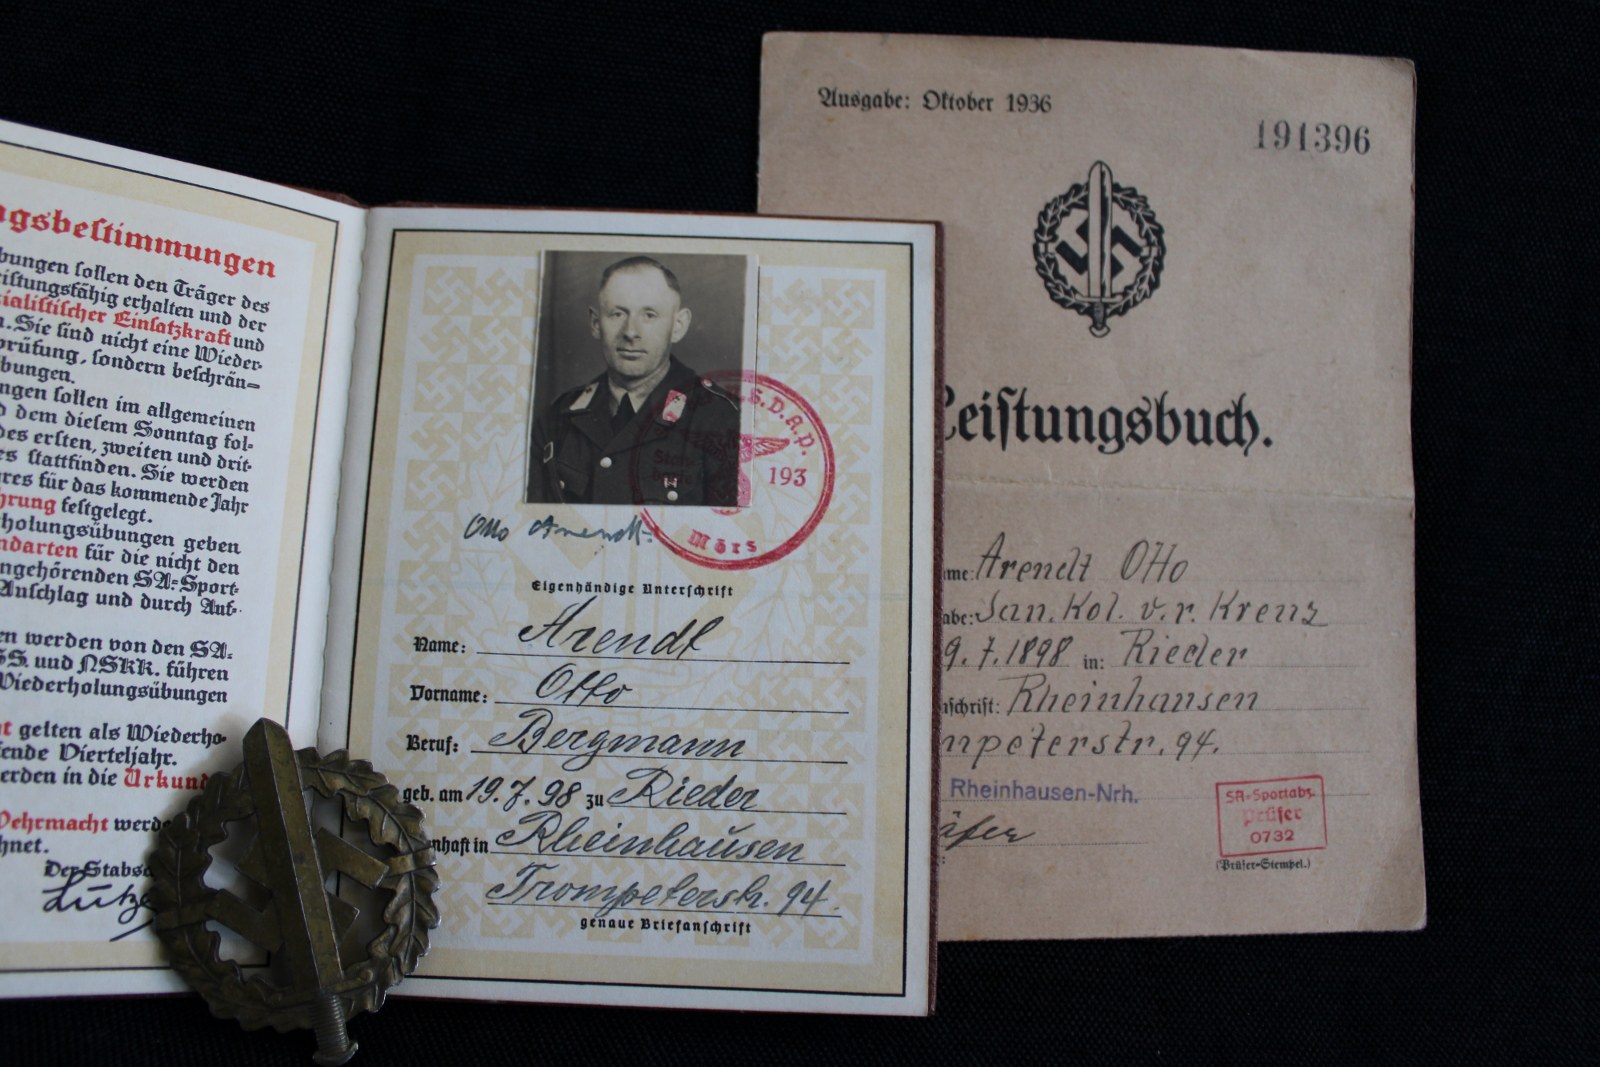 gsbestimmungen
bungen sollen den Träger des
istungsfähig erhalten und der
zialistischer Einsatzkraft und
n. Sie sind nicht eine Wieder-
prüfung, sondern beschrän-
bungen.
ngen sollen im allgemeinen
d dem diesem Sonntag fol-
des ersten, zweiten und drit-
es stattfinden. Sie werden
res für das kommende Jahr
hrung festgelegt.
holungsübungen geben
ndarten für die nicht den
angehörenden SA=Sport-
Anschlag und durch Auf-
en werden von den SA-
SS. und NSKK. führen
Wiederholungsübungen
t gelten als Wiederho-
fende Vierteljahr.
erden in die Urkund
Wehrmacht werde
hnet.
Der Stabsc
Lutze
S.D.A.P.
193
Mörs
Otto Arendt
Eigenhändige Unterschrift
Name: Arendt
Vorname: Otto
Beruf: Bergmann
geb. am 19.7.98 zu Rieder
nhaft in Rheinhausen
Trompeterstr. 94.
genaue Briefanschrift
Ausgabe: Oktober 1936
191396
Leistungsbuch.
me: Arendt Otto
abe: San. Kol. v. r. Kreuz
9.7.1898 in: Rieder
nschrift: Rheinhausen
mpeterstr. 94.
Rheinhausen-Nrh.
äfer
SA-Sportabz.
Prüfer
0732
(Prüfer-Stempel.)